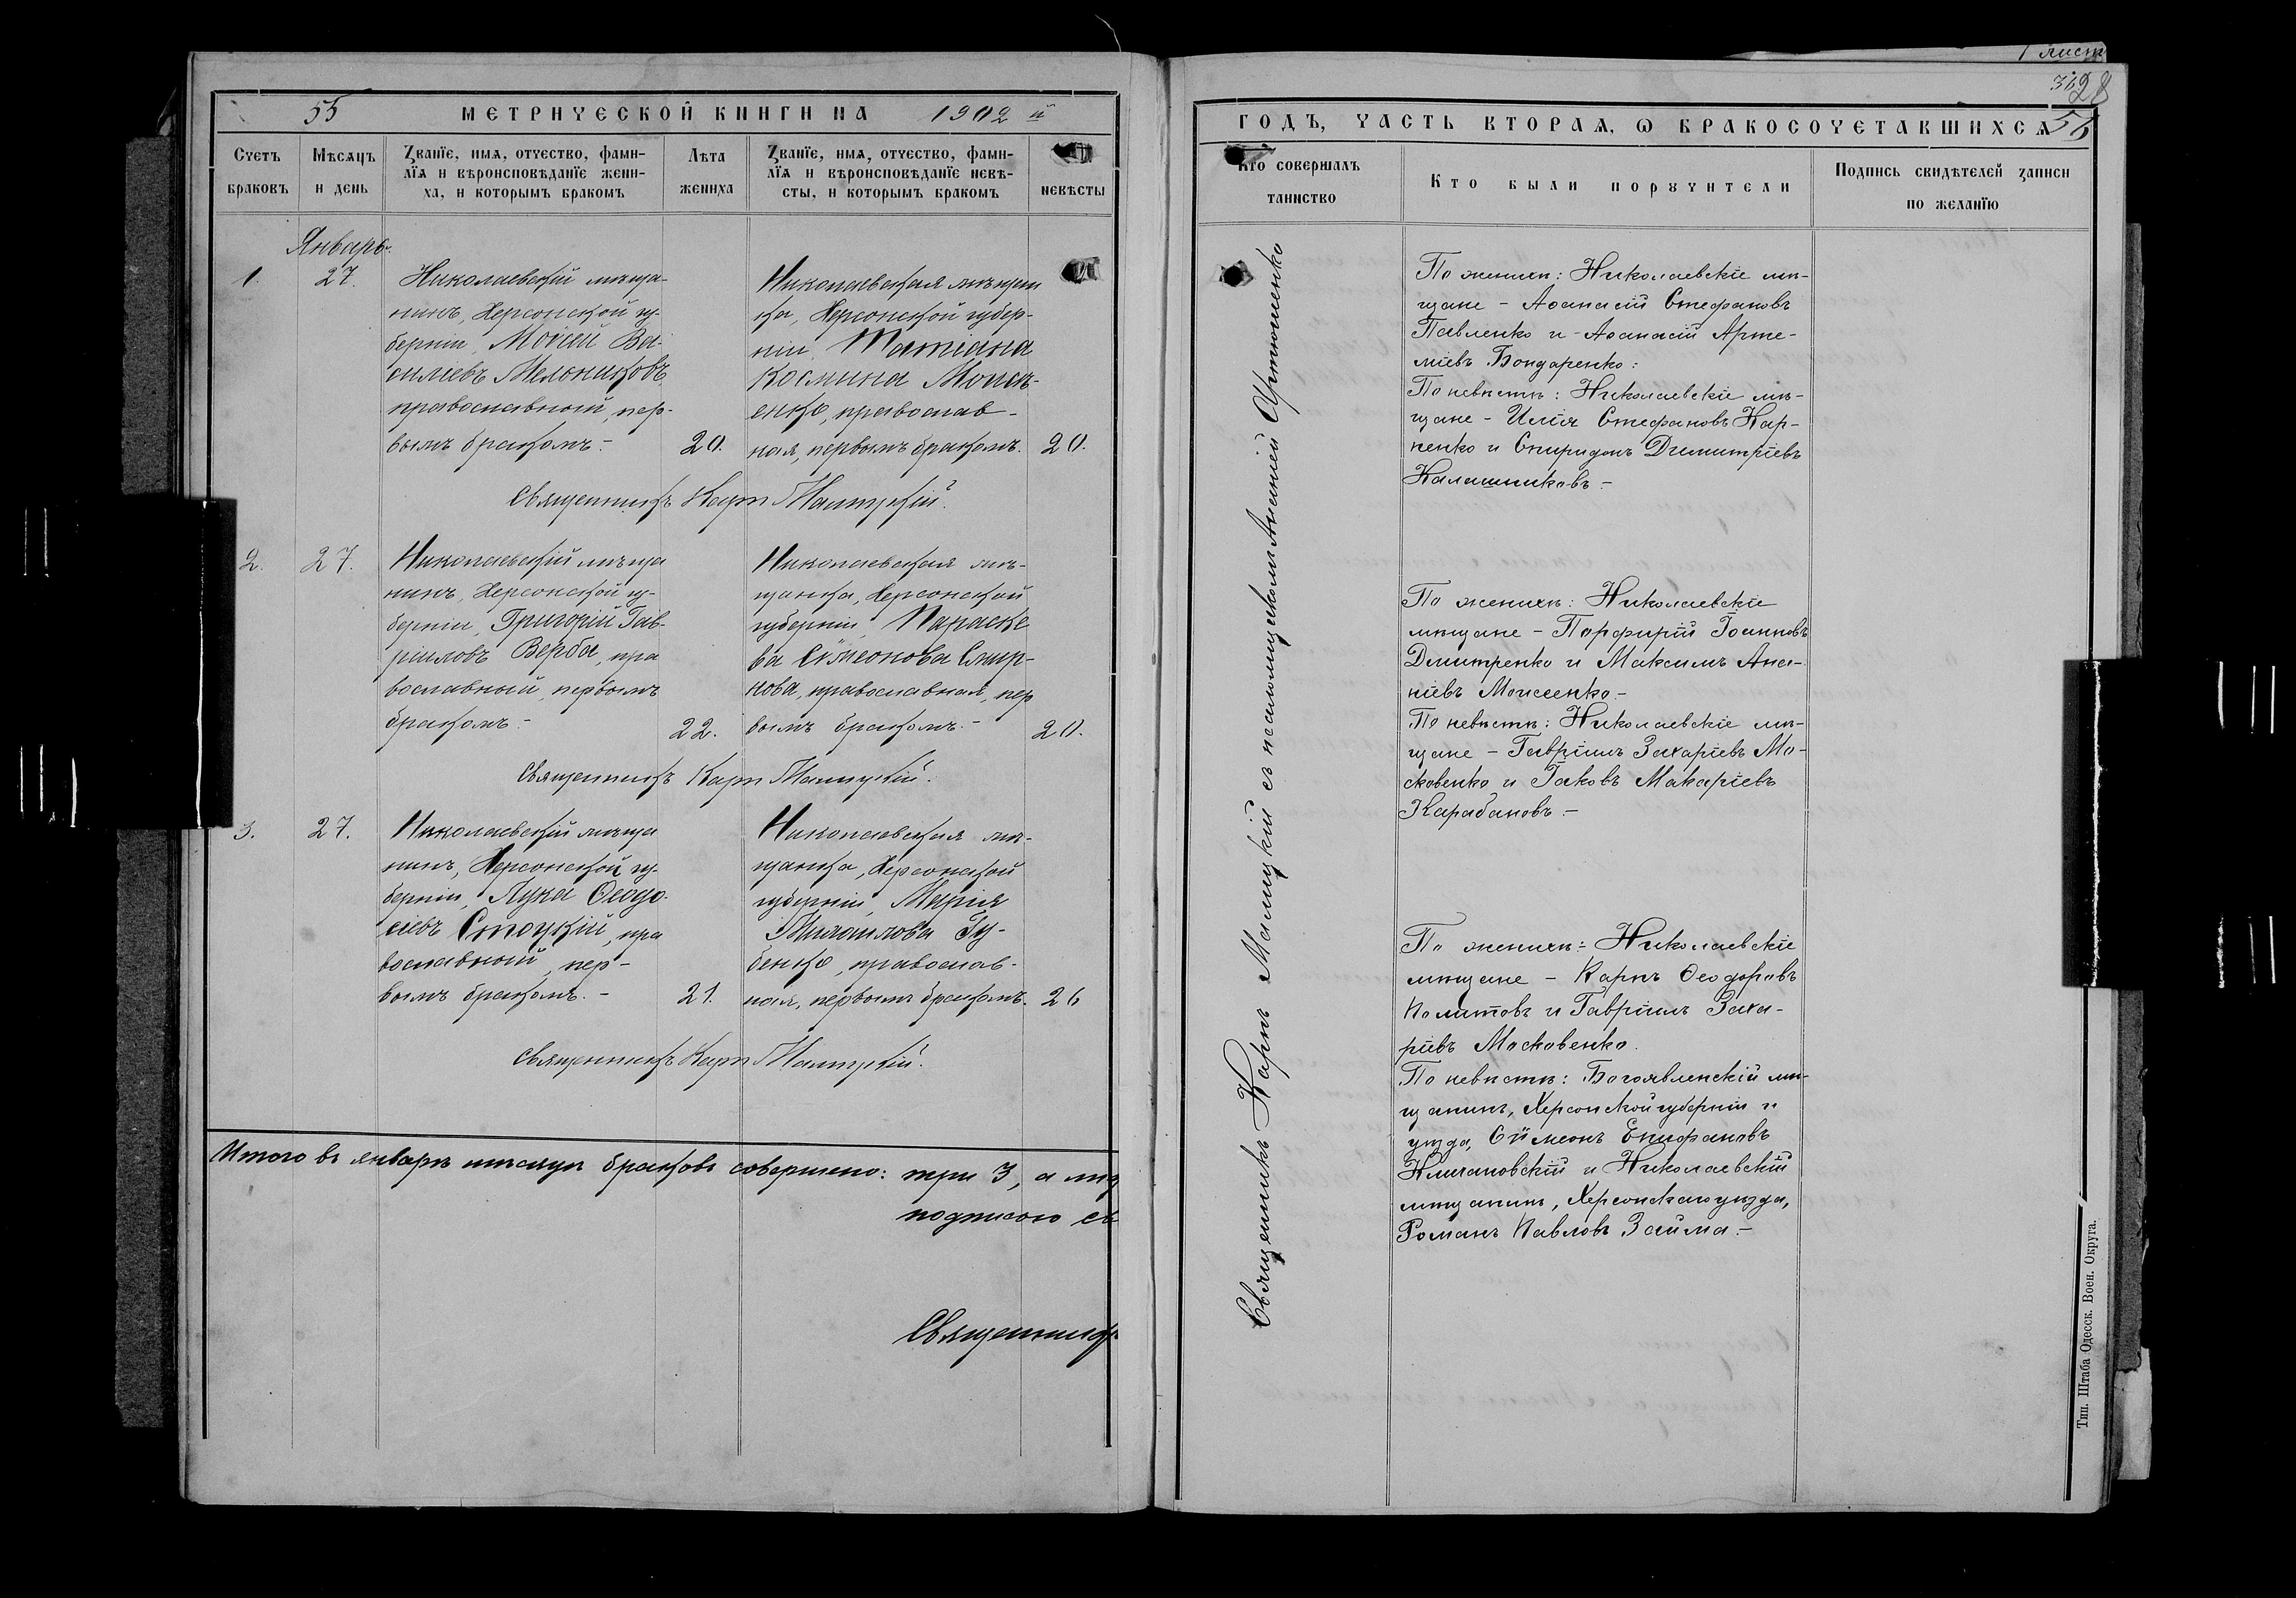 1 листъ
55
МЕТРИЧЕСКОЙ КНИГИ НА 1902 й
Счетъ браковъ
Мѣсяцъ и день
Званїе, имя, отчество, фами-
лїя и вѣроисповѣданїе жени-
ха, и которымъ бракомъ
Лѣта жениха
Званїе, имя, отчество, фами-
лїя и вѣроисповѣданїе невѣ-
сты, и которымъ бракомъ
невѣсты
Январь.
1.
27.
Николаевскій мѣща-
нинъ, Херсонской гу-
берніи, Мойсій Ва-
силіевъ Мельниковъ,
православный, пер-
вымъ бракомъ.-
20.
Николаевская мѣщан
ка, Херсонской губер-
ніи, Татіана
Космина Моисе-
енко, православ-
ная, первымъ бракомъ.
20.
Священникъ Карп Малицкій.
2.
27.
Николаевскій мѣща
нинъ, Херсонской гу-
берніи, Григорій Гав-
ріиловъ Верба, пра
вославный, первымъ
бракомъ.-
22.
Николаевская мѣ-
щанка, Херсонской
губерніи, Параске
ва Сѵмеонова Смир-
нова, православная, пер
вымъ бракомъ.-
20.
Священникъ Карп Малицкій.
3.
27.
Николаевскій мѣща
нинъ, Херсонской гу-
берніи, Лука Ѳеодо-
сіевъ Стоцкій, пра
вославный, пер-
вымъ бракомъ.-
21.
Николаевская мѣ-
щанка, Херсонской
губерніи, Марія
Михаилова Гу-
бенко, православ-
ная, первымъ бракомъ.
26
Священникъ Карп Малицкій.
Итого въ январѣ мѣсяцѣ браковъ совершено: три 3, а
подписью
Священникъ
28
56
ГОДЪ, ЧАСТЬ ВТОРАЯ, Ѡ БРАКОСОЧЕТАВШИХСЯ
Кто совершалъ таинство
Кто были поручители
Подпись свидѣтелей записи
по желанїю
Священникъ Карпъ Малицкій съ псаломщикомъ Ананіей Артюшенко
По женихѣ: Николаевскіе мѣ-
щане - Аѳанасій Стефановъ
Павленко и Аѳанасій Арте-
міевъ Бондаренко:
По невѣстѣ: Николаевскіе мѣ-
щане - Илія Стефановъ Кар-
пенко и Спиридонъ Димитріевъ
Калашниковъ.-
По женихѣ: Николаевскіе
мѣщане - Порфирій Іоанновъ
Дмитренко и Максимъ Ана-
ніевъ Моисеенко.-
По невѣстѣ: Николаевскіе мѣ-
щане - Гавріилъ Захаріевъ Мо-
сковенко и Іаковъ Макаріевъ
Карабановъ.-
По женихѣ: Николаевскіе
мѣщане - Карпъ Ѳеодоровъ
Политовъ и Гавріилъ Заха-
ріевъ Московенко.
По невѣстѣ: Богоявленскій мѣ-
щанинъ, Херсонской губерніи и
уѣзда, Сѵмеонъ Епифановъ
Климановскій и Николаевскій
мѣщанинъ, Херсонскаго уѣзда,
Романъ Павловъ Займа.-
Тип. Штаба Одесск. Воен. Округа.